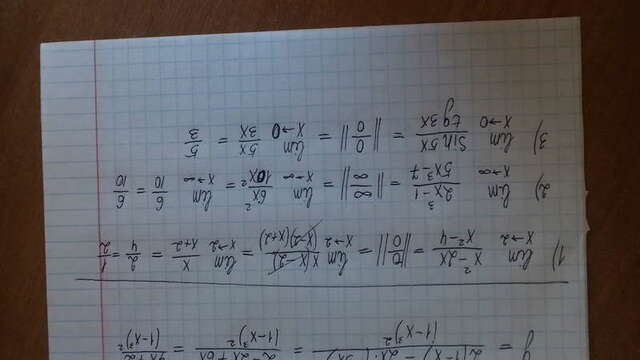 y = 2(1-x³) - 2x·(-3x²) / (1-x³)² = 2-2x³+6x³ / (1-x³)² = 4x³+2 / (1-x³)²
1) lim x→2 x²-2x / x²-4 = ||0/0|| = lim x→2 x(x-2) / (x-2)(x+2) = lim x→2 x / x+2 = 2/4 = 1/2
2) lim x→∞ 2x³-1 / 5x³-7 = ||∞/∞|| = lim x→∞ 6x² / 10x² = lim x→∞ 6/10 = 6/10
3) lim x→0 Sin 5x / tg 3x = ||0/0|| = lim x→0 5x / 3x = 5/3